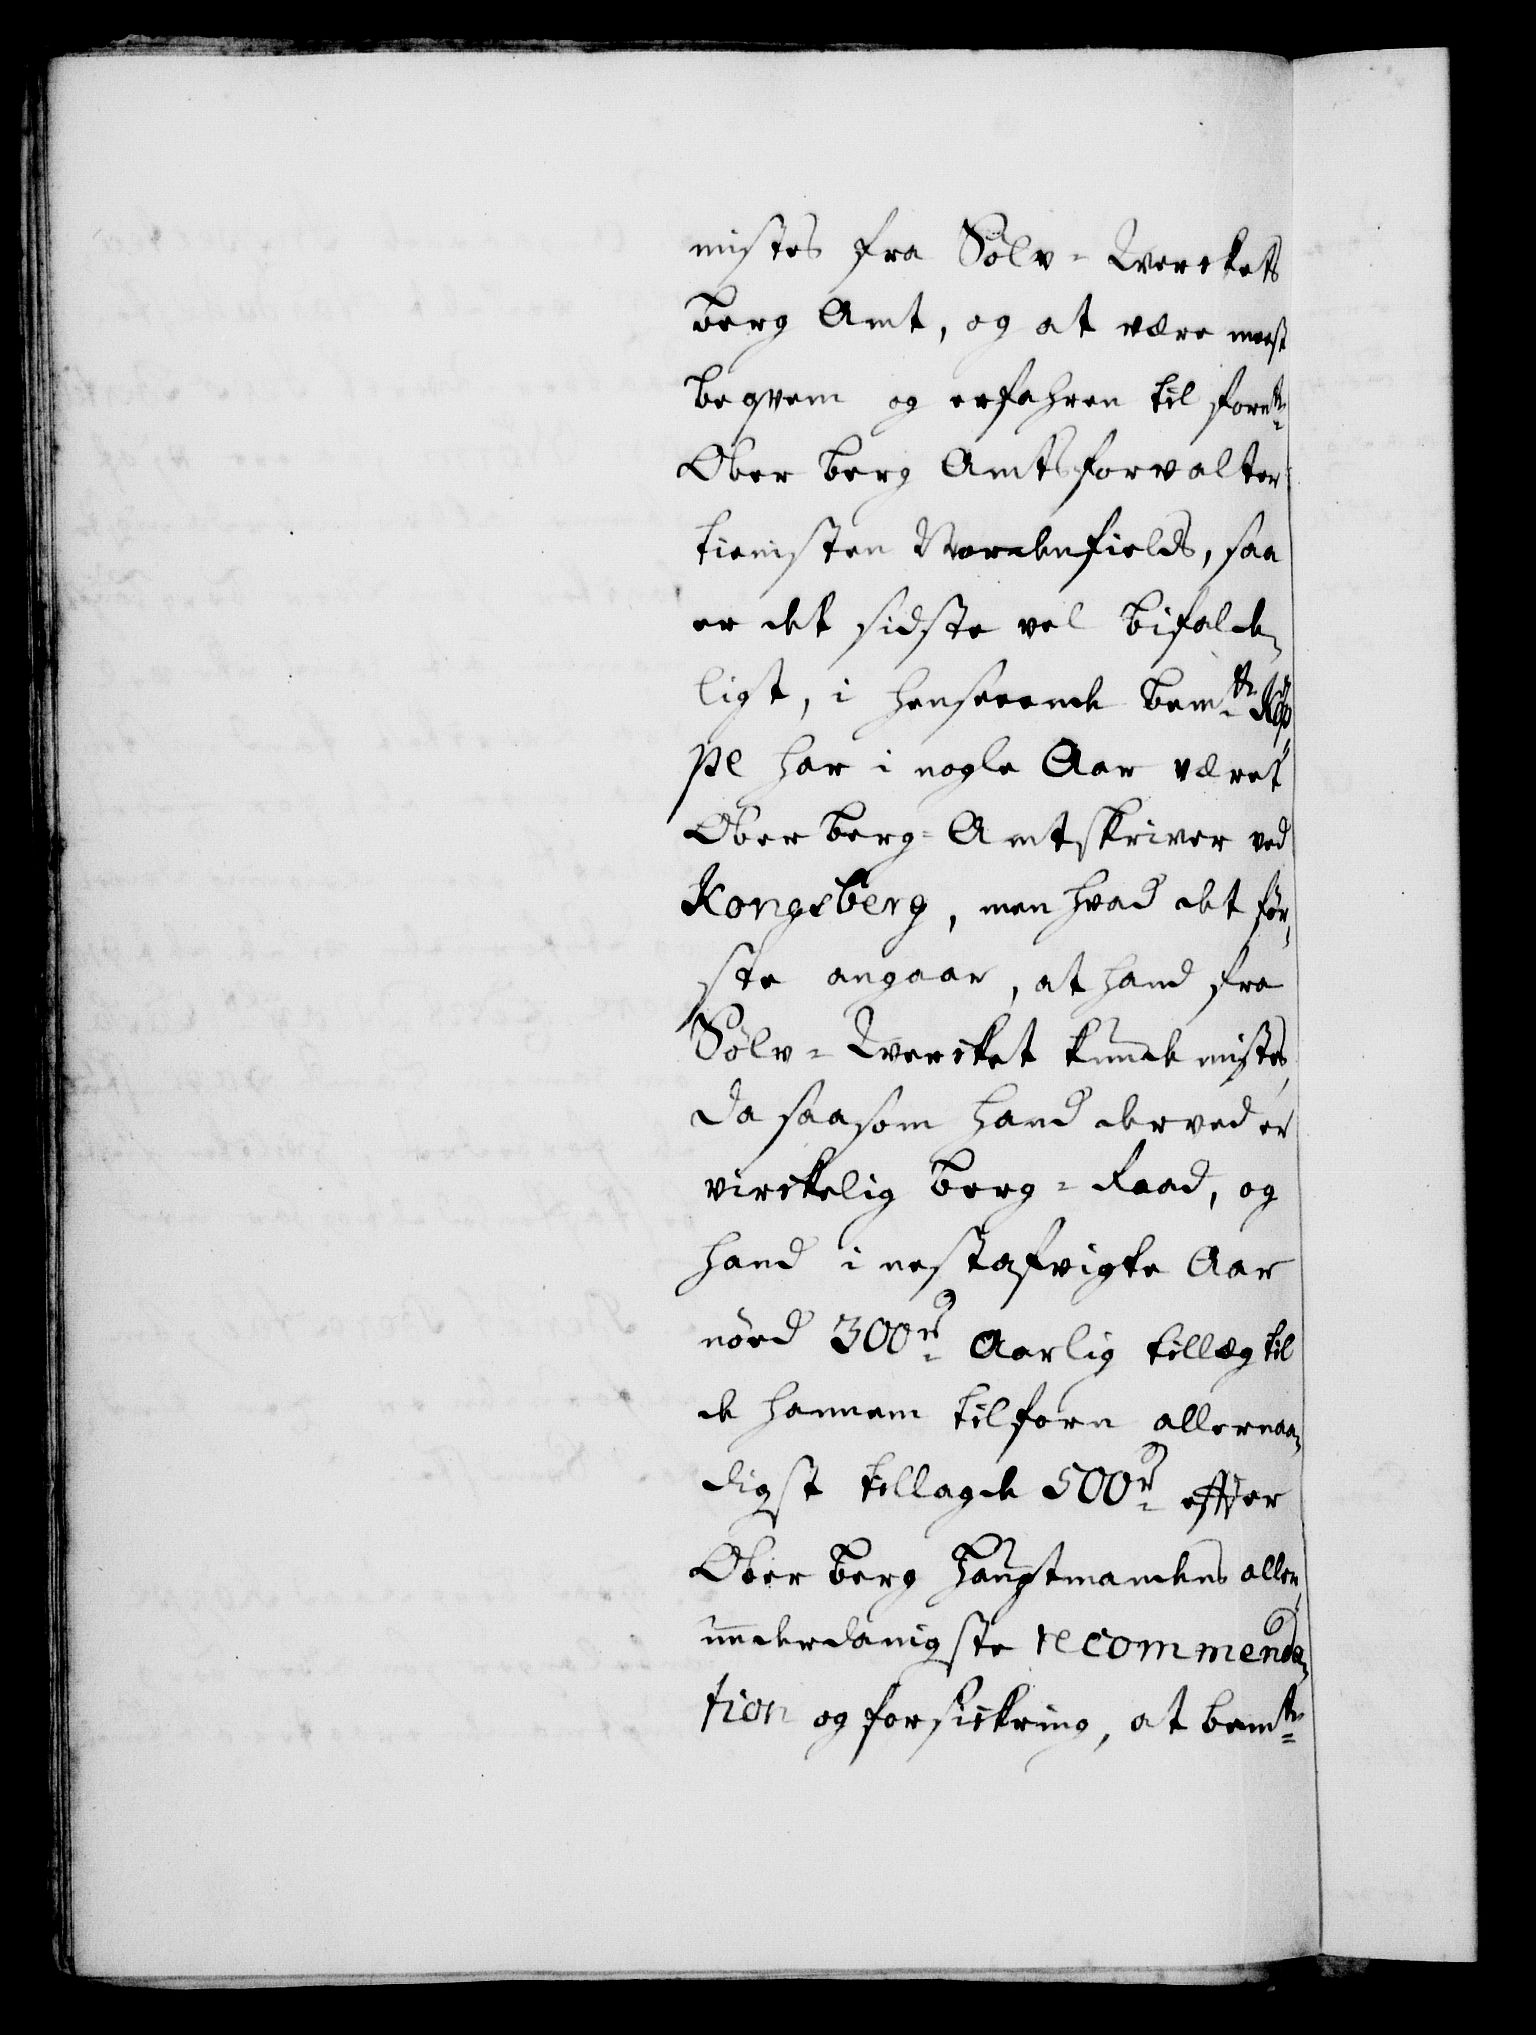 mistes fra Sølv-Werckets
berg Amt, og at være meest
beqvem og erfahren til fornte
Ober berg Amtsforvalter
tienisten Nordenfields, saa
er det sidste vel bifalde,
ligt, i henseende bemte Köp
pe har i nogle Aar været
Ober berg-Amtskriver ved
Kongsberg, men hvad det før,
ste angaar, at hand fra
Sølv-Wercket kunde mistes,
da saasom hand derved er
virckelig berg-Raad, og
hand i nestafvigte Aar
nöed 300 rd Aarlig tillæg til
de hannem tilforn allernaa,
digst tillagde 500 rd efter
Ober berg Haugtmandens aller,
underdanigste recommenda,
tion og forsickring, at bemte